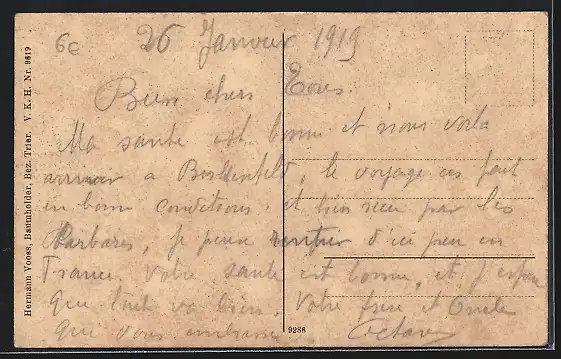 6€
26 Janvier 1919
Bien chers Tous.
Ma santé est bonne et nous voilà
arriver a Birkenfeld, le voyage ces fait
en bonne conditions et bien recu par les
Barbares, je pense rentrer d'ici peu en
France. Votre santé est bonne, et j'espere
que tout va bien. Votre frère et Oncle
que vous embrasse Octave
Hermann Vooss, Baumholder, Bez. Trier. V. K. H. Nr. 9619
9288